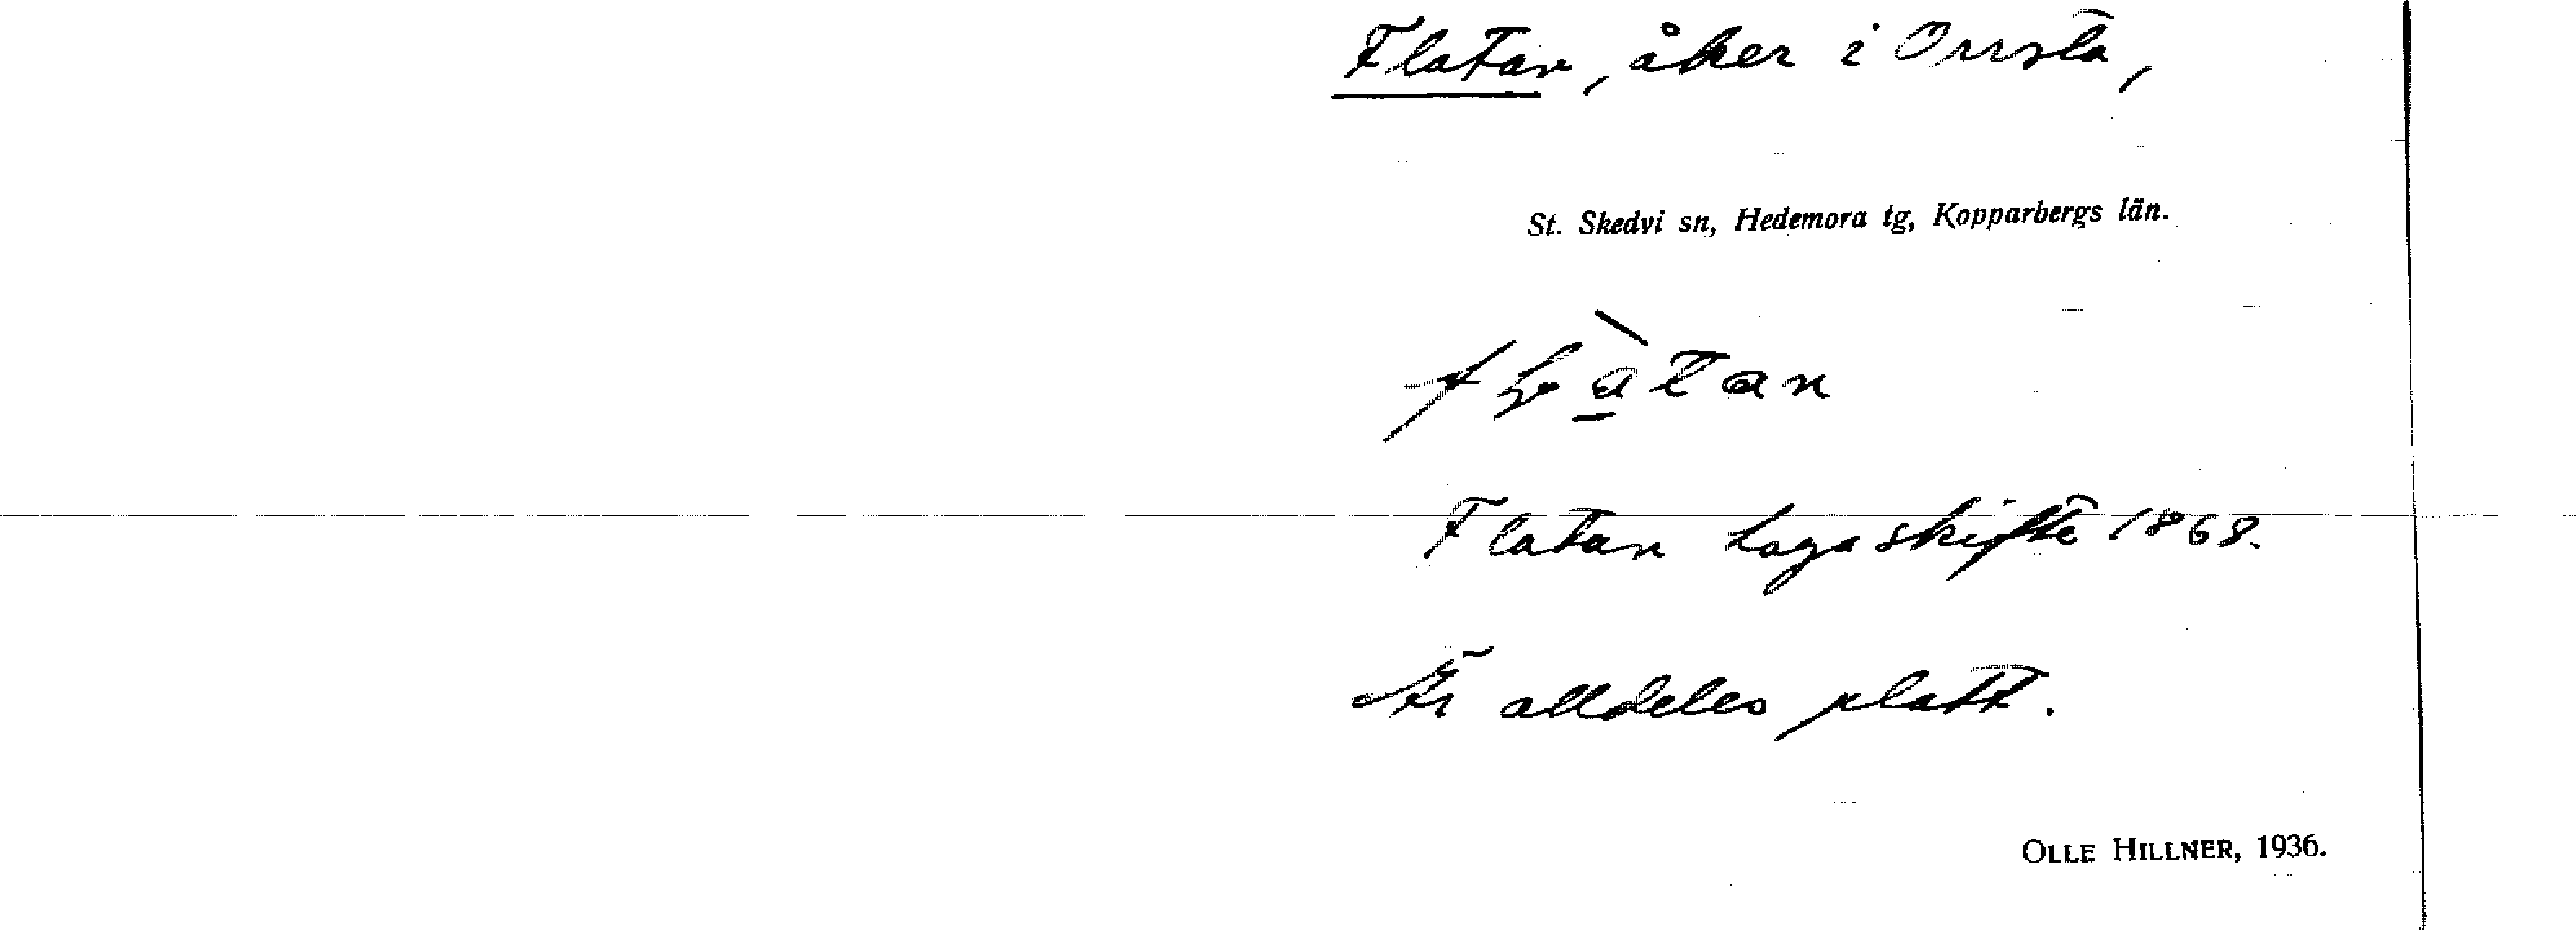 Flatan, åker i Orrsta,
St. Skedvi sn, Hedemora tg, Kopparbergs län.
Flatan Laga skifte 1868.
Är alldeles platt.
OLLE HILLNER, 1936.